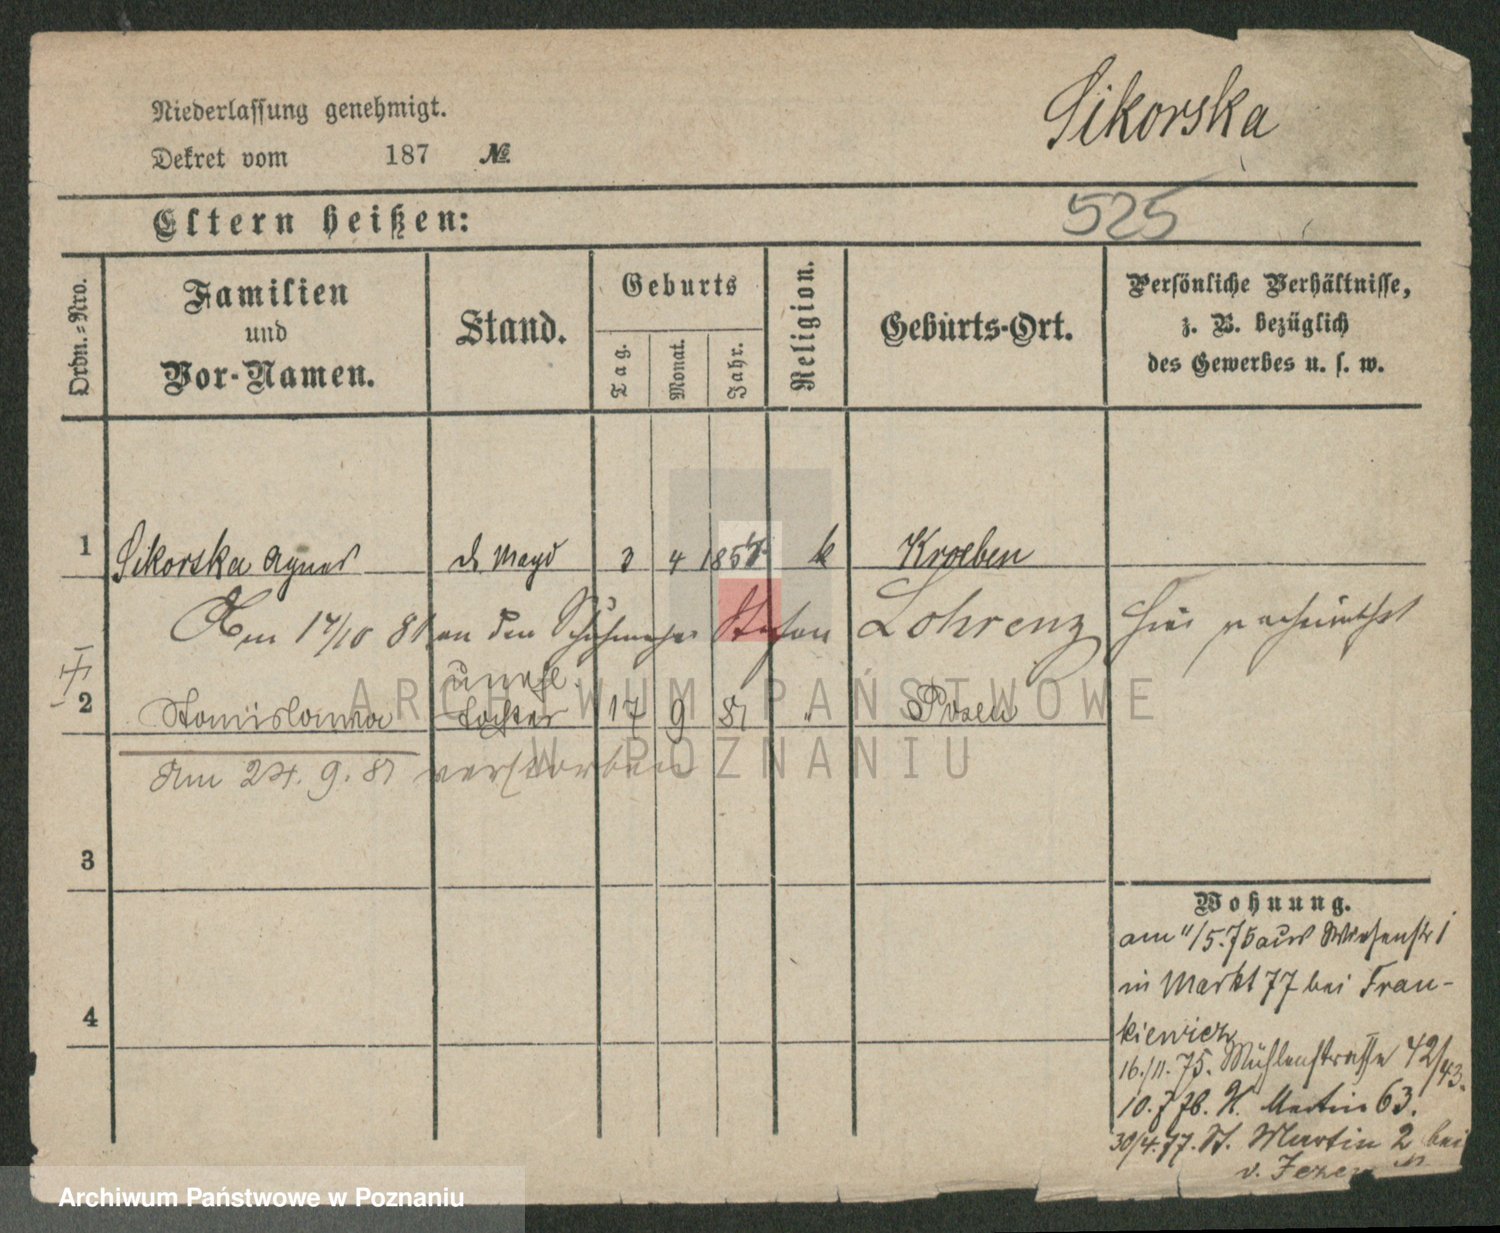 Niederlassung genehmigt.
Sikorska
Dekret vom 187 №
Eltern heißen:
525
Ordn.-Nro.
Familien
und
Vor-Namen.
Stand.
Geburts
Tag.
Monat.
Jahr.
Religion.
Geburts-Ort.
Persönliche Verhältnisse,
z. B. bezüglich
des Gewerbes u. s. w.
1 Sikorska Agnes d. Magd 3 4 185 k Kroeben
Am 17/10 81 an den Schuhmacher Stefan Lohrenz hier verheirathet
unehl.
2 Stanislawa Tochter 17 9 81 " Posen
Am 24. 9. 81 verstorben
3
4
Wohnung.
am 11/5.75 aus Wiesenstr 1
in Markt 77 bei Fran-
kiewicz
16./11.75. Mühlenstrasse 42/43.
10.7 76. St. Martin 63.
30/4.77. St. Martin 2 bei
v.
ARCHIWUM PAŃSTWOWE
W POZNANIU
Archiwum Państwowe w Poznaniu